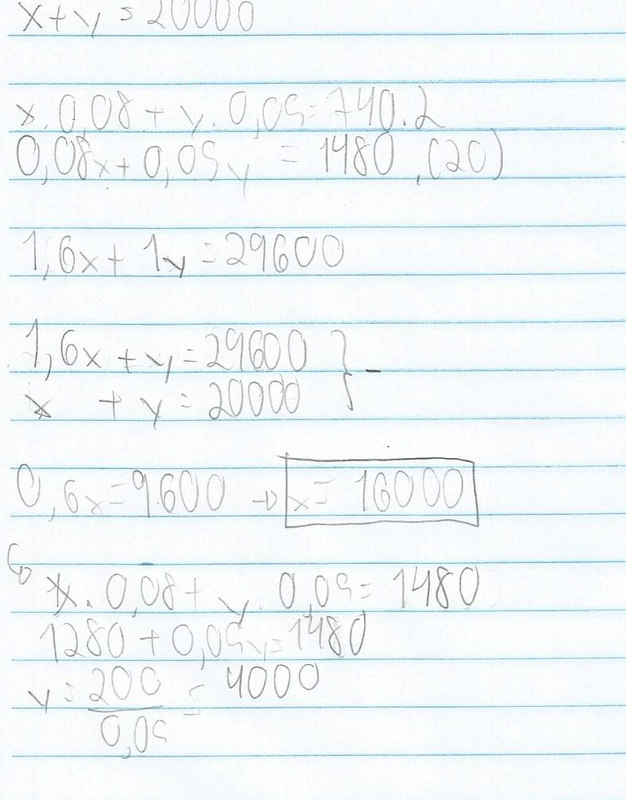 x+y = 20000
x.0,08 + y.0,05 = 740.2
0,08x + 0,05y = 1480 .(20)
1,6x + 1y = 29600
1,6x + y = 29600 } -
x + y = 20000
0,6x = 9600 → x = 16000
↳ x.0,08 + y.0,05 = 1480
1280 + 0,05y = 1480
y = 200 = 4000
0,05